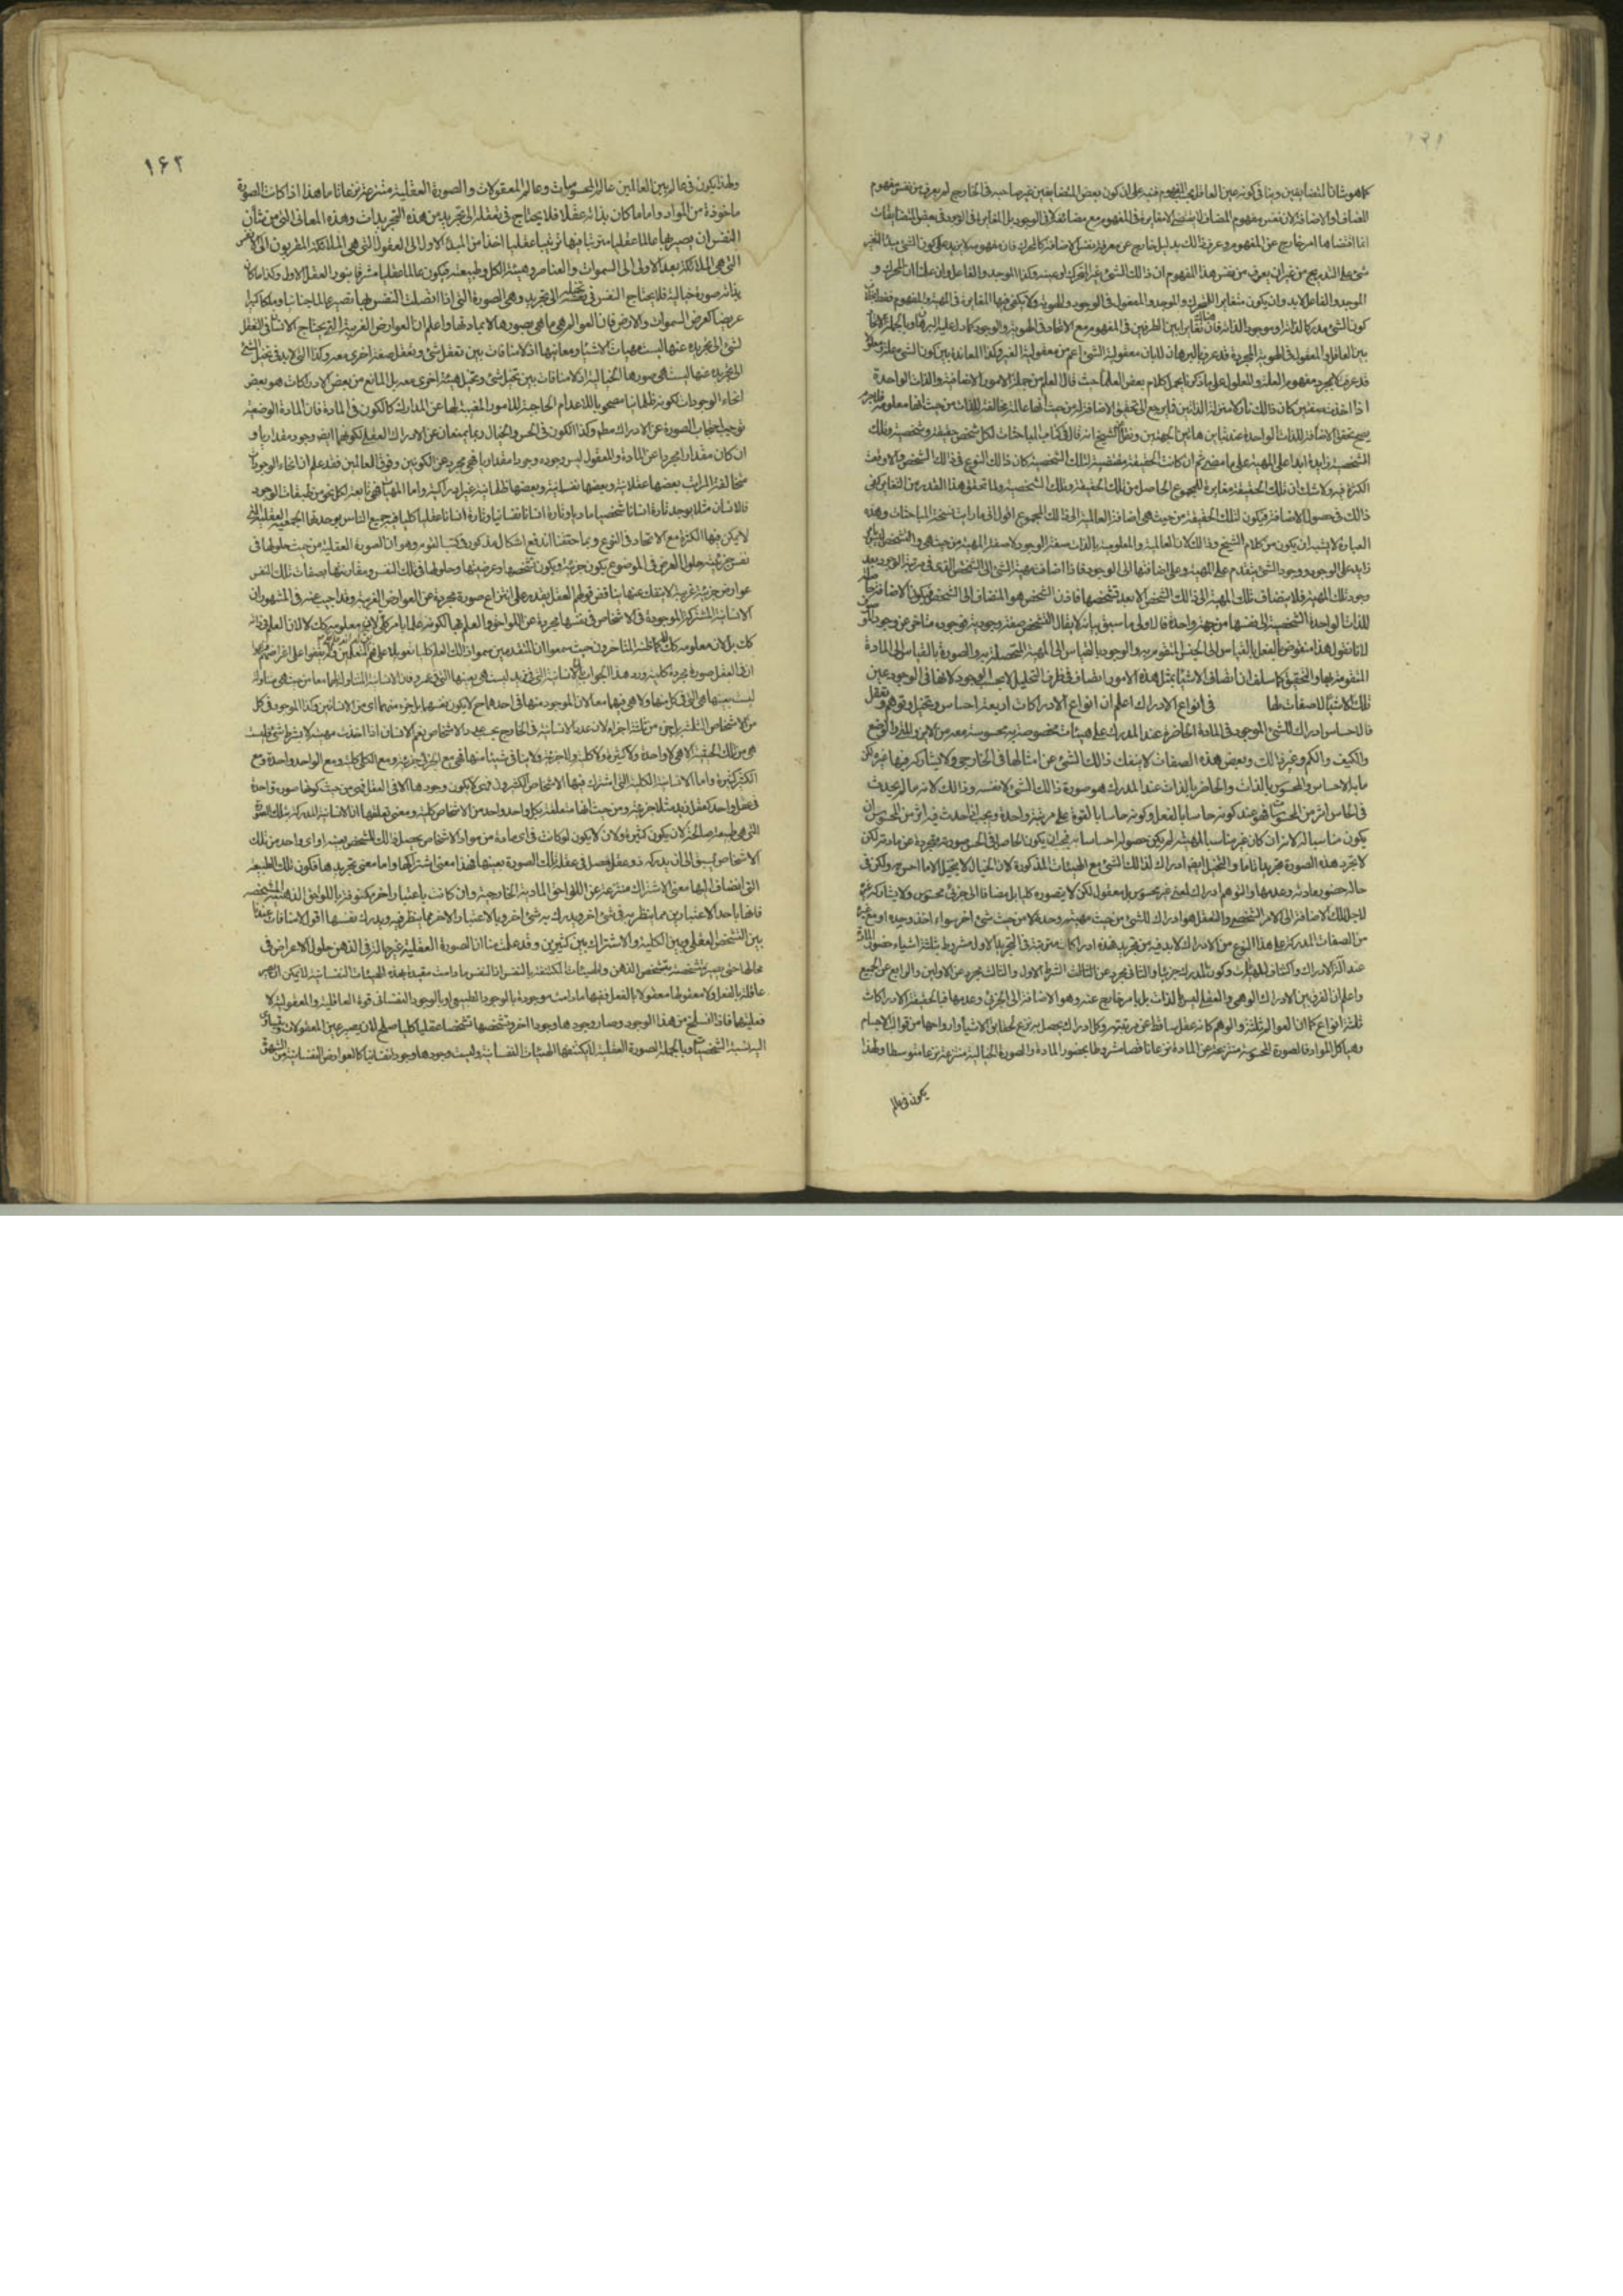 كما هو شان المتضايفين وينافى كونه عين العاقل بحسب المفهوم فنبه على ان كون بعض المتضايفين غير صاحبه فى الخارج لم يعرف من نفس مفهوم
المضاف او الاضافة لان نفس مفهوم المضاف لا يقتضى الا مغايرة فى المفهوم مع مضائفه لا فى الوجود بل المغايرة فى الوجود فى بعض المتضايفات
انما اقتضاها امر خارج عن المفهوم وعرف ذالك بدليل خارج عن معرفة نفس الاضافة كالمحرك فان مفهومه لا يزيد على كون الشئ مبدأ لتغير
شئ على التدريج من غير ان يعرف من نفس هذا المفهوم ان ذالك الشئ غير المتحرك او عينه وكذا الموجد والفاعل وان علمنا ان المحرك و
الموجد والفاعل لابد وان يكون متغاير المتحرك والموجد والمفعول فى الوجود والهوية ولا يكفى فيها المغايرة فى المهية والمفهوم فقط
كون الشئ مدركا لذاته او موجود الذاته فان تغاير الطرفين فى المفهوم مع الاتحاد فى الهوية والوجود كما دل عليه البرهان وبالجملة
بين العاقل والمعقول فى الهوية المجردة قد عرف بالبرهان للبان معقولية الشئ اعم من معقولية الغير وكذا المعاندة بين كون الشئ علة ومعلولا
قد عرف لا بمجرد مفهوم العلة والمعلول على ما ذكرنا يحمل كلام بعض العلماء حيث قال العلم من جملة الامور الاضافية والذات الواحدة
اذا اخذت صفتين كان ذالك نازلا منزلة الذاتين فيرجع الى تحقيق الاضافة لا من حيث انها عالمة مخالفة للذات من حيث انها معلومة فلاجرم
يصح تحقق الاضافة للذات الواحدة عند تباين هاتين الجهتين ونقل الشيخ انه قال فى كتاب المباحثات لكل شخص حقيقة وشخصية وتلك
الشخصية زايدة ابدا على المهية على ما مضى ثم ان كانت الحقيقة مقتضية لتلك الشخصية كان ذالك النوع فى ذالك الشخص والا وقعت
الكثرة فيه ولاشك ان تلك الحقيقة مغايرة للمجموع الحاصل من تلك الحقيقة وتلك الشخصية ولما تحقق هذا القدر من التغاير كفى
ذالك فى حصول الاضافة فيكون لتلك الحقيقة من حيث هى اضافة العالمية الى ذالك المجموع اقول انى ما رايت نسخة المباحثات وهذه
العبارة لا يشبه ان يكون من كلام الشيخ وذالك لان العالمية والمعلومية بالذات صفة الوجود لا صفة المهية من حيث هى والتشخص
زايد على الوجود ووجود الشئ متقدم على المهية وعلى اضافتها الى الوجود فاذا اضافت مهية الشئ الى التشخص الذى فى مرتبة الوجود بعد
وجود تلك المهية فلا يضاف تلك المهية الى ذالك الشخص الا بعد تشخصها فاذن الشخص هو المضاف الى الشخص فيكون الاضافة
للذات الواحدة الشخصية الى نفسها من جهة واحدة قال اولى ما سبق بيانه لا يقال التشخص صفة وجودية فوجوده متاخر عن وجود
لانا نقول هذا منقوض بالفصل بالقياس الى الجنس المتقوم به والوجود بالقياس الى المهية المتحصلة به والصورة بالقياس الى المادة
المتقومة بها والتحقيق كما سلف ان اتصاف الاشياء بمثل هذه الامور اتصاف فى ظرف التحليل لا بحسب الوجود لانها فى الوجود عين
تلك الاشياء لا صفات لها فى انواع الادراك اعلم ان انواع الادراكات اربعة احساس وتخيل وتوهم وتعقل
فالاحساس ادراك للشئ الموجود فى المادة الحاضرة عند المدرك على هيئات مخصوصة به محسوسة معه من الاين والمتى والوضع
والكيف والكم وغير ذالك وبعض هذه الصفات لا ينفك ذالك الشئ عن امثالها فى الخارج ولا يشاركه فيها غيره لكن
ما به الاحساس والمحسوس بالذات والحاضر بالذات عند المدرك هو صورة ذالك الشئ لا نفسه وذالك لانه ما لم يحدث
فى الحاس اثر من المحسوسات فهو عند كونه حاسا بالفعل وكونه حاسا بالقوة على مرتبة واحدة ويجب اذا حدث فيه اثر من المحسوس ان
يكون مناسبا له لانه ان كان غير مناسب لمهيته لم يكن حصوله احساسا به فيجب ان يكون الحاصل فى الحس صورته متجردة عن مادته لكن
لا تجرد هذه الصورة تجريدا تاما والتخيل ايضا ادراك لذالك الشئ مع الهيئات المذكورة لان الخيال لا يتخيل الا ما احس به ولكن فى
حالة حضور مادته وعدمها والتوهم ادراك لمعنى غير محسوس بل معقول لكن لا يتصوره كليا بل مضافا الى جزئى محسوس ولا يشاركه غيره
لاجل تلك الاضافة الى الامر الشخصى والتعقل هو ادراك للشئ من حيث مهيته وحده لا من حيث شئ اخر سواء اخذ وحده او مع غيره
من الصفات المدركة على هذا النوع من الادراك لابد فيه من تجريد فهذه ادراكات مترتبة فى التجريد الاول مشروط بثلثة اشياء حضور المادة
عند آلة الادراك واكتناف الهيئات وكون المدرك جزئيا والثانى مجرد عن الشرط الاول والثالث مجرد عن الاولين والرابع عن الجميع
واعلم ان الفرق بين الادراك الوهمى والعقلى ليس بالذات بل بامر خارج عنه وهو الاضافة الى الجزئى وعدمها فبالحقيقة الادراكات
ثلثة انواع كما ان العوالم ثلثة والوهم كانه عقل ساقط عن مرتبته وكل ادراك يحصل به نزع لحقايق الاشياء وارواحها من قوالب الاجسام
وهياكل المواد فالصورة المحسوسة منتزعة عن المادة نزعا ناقصا مشروطا بحضور المادة والصورة الخيالية منتزعة نزعا متوسطا ولهذا
يكون فى عالم
١۶٢
ولهذا يكون فى عالم بين العالمين عالم المحسوسات وعالم المعقولات والصورة العقلية منتزعة نزعا تاما هذا اذا كانت الصورة
ماخوذة من المواد واما ما كان بذاته عقلا فلا يحتاج فى تعقله الى تجريد من هذه التجريدات وهذه المعانى التى من شأن
النفس ان يصير بها عالما عقليا مترتبا فيها ترتيبا عقليا اخذا من المبدء الاول الى العقول التى هى الملائكة المقربون الى النفوس
التى هى الملائكة بعد الاولى الى السموات والعناصر وهيئة الكل وطبيعته فيكون عالما عقليا مشرقا بنور العقل الاول وكذا ما كان
بذاته صورة خيالية فلا يحتاج النفس فى تخيله الى تجريد وهى الصورة التى اذا اتصلت النفس بها تصير عالما جنانيا وملكا كبيرا
عريضا كعرض السموات والارض فان العوالم هى ما هى بصورها لا بمادتها واعلم ان العوارض الغريبة التى يحتاج الانسان فى التعقل
لشئ الى تجريده عنها ليست مهيات الاشياء ومعانيها اذ لا منافات بين تعقل شئ وتعقل صفة اخرى معه وكذا التى لابد فى تخيل الشئ
الى تجريده عنها ليست هى صورها الخيالية اذ لا منافات بين تخيل شئ وتخيل هيئة اخرى معه بل المانع من بعض الادراكات هو بعض
انحاء الوجودات لكونه ظلمانيا مصحوبا بالاعدام الحاجبة للامور المغيبة لها عن المدارك كالكون فى المادة فان المادة الوضعية
توجب احتجاب الصورة عن الادراك مطم وكذا الكون فى الحس والخيال ربما يمنعان عن الادراك العقلى لكونهما ايضا وجود مقدارى و
ان كان مقدارا مجردا عن المادة والمعقول ليس وجوده وجودا مقداريا فهى مجرد عن الكونين وفوق العالمين فقد علم ان انحاء الوجودات
متخالفة المراتب بعضها عقلانية وبعضها نفسانية وبعضها ظلمانية غير ادراكية واما المهيات فهى تابعة لكل نحو من طبقات الوجود
فالانسان مثلا يوجد تارة انسانا شخصيا ماديا وتارة انسانا نفسانيا وتارة انسانا عقليا كليا فيه جميع الناس بوحدتها الجمعية العقلية التى
لا يمكن فيها الكثرة مع الاتحاد فى النوع وبما حققنا اندفع اشكال مذكور فى كتب القوم وهو ان الصورة العقلية من حيث حلولها فى
نفس جزئية حلول العرض فى الموضوع يكون جزئية ويكون تشخصها وعرضيتها وحلولها فى تلك النفس ومقارنتها بصفات تلك النفس
عوارض جزئية غريبة لا ينفك عنها يناقض قولهم العقل يقدر على انتزاع صورة مجردة عن العوارض الغريبة وقد اجيب عنه فى المشهور ان
الانسانية المشتركة الموجودة فى الاشخاص فى نفسها مجردة عن اللواحق والعلم بها لكونه علما بامر كلى لان معلومه كك لا لان العلم فى ذاته
كك بل لان معلومه كك كما ظنه المتاخرون حيث سمعوا ان المتقدمين سموا ذالك العلم كليا تعويلا على فهم المتعلمين ولم يقفوا على اغراضهم
ان فى العقل صورة مجردة كلية ورد هذا الجواب بان الانسانية التى فى زيد ليست هى بعينها التى فى عمرو فان الانسانية المتناولة لهما معا من حيث هى متناولة
ليست بعينها هى التى فى كل منها ولا هى فيهما معا لان الموجود منها فى احدهما ح لا يكون نفسها بل جزء منهما اى من الانسانين وكذا الموجود فى كل
من الاشخاص الثلثة جزء من ثلثة اجزاء لان عدة الانسانية فى الخارج بحسب عدد الاشخاص نعم الانسان اذا اخذت مهيته لا بشرط شئ فليست
هى من تلك الحيثية الا هى لا واحدة ولا كثيرة ولا كلية ولا جزئية ولا ينافى شيئا منها فهى مع الجزئى جزئية ومع الكلى كلية ومع الواحد واحدة ومع
الكثير كثيرة واما الانسانية الكلية التى اشترك فيها الاشخاص الكثيرون فهى لا يكون وجودها الا فى العقل فهى من حيث كونها صورة واحدة
فى عقل واحد كعقل زيد مثلا جزئية ومن حيث انها متعلقة بكل واحد واحد من الاشخاص كلية ومعنى تعلقها ان الانسانية المدركة بتلك الصورة
التى هى طبيعة صالحة لان يكون كثيرة ولان لا يكون لو كانت فى اى مادة من مواد الاشخاص يحصل ذالك الشخص بعينه او اى واحد من تلك
الاشخاص سبق الى ان يدركه ذو عقل حصل فى عقله تلك الصورة بعينها فهذا معنى اشتراكها واما معنى تجريدها فكون تلك الطبيعة
التى انضاف اليها معنى الاشتراك منتزعة عن اللواحق المادية الخارجية وان كانت باعتبار اخر مكنوفة باللواحق الذهنية المشخصة
فانها باحد الاعتبارين مما ينظر به فى شئ اخر ويدرك به شئ اخر وبالاعتبار الاخر مما ينظر فيه ويدرك نفسها اقول لا منافات عندنا
بين التشخص العقلى وبين الكلية والاشتراك بين كثيرين وقد علمت منا ان الصورة العقلية غير حالة فى الذهن حلول الاعراض فى
محالها حتى يصير متشخصة بتشخص الذهن والهيئات المكتنفة بالنفس اذ النفس ما دامت مقيدة بهذه الهيئات النفسانية لا يمكن ان يصير
عاقلة بالفعل ولا معقولها معقولا بالفعل ففيها ما دامت موجودة بالوجود الطبيعى او بالوجود النفسانى قوة العاقلية والمعقولية لا
فعليتها فاذا انسلخت من هذا الوجود وصار وجودها وجودا اخر وتشخصها تشخصا عقليا كليا صلح لان يصير عين المعقولات ويتساوى
اليه نسبة الشخصيات وبالجملة الصورة العقلية لا يكتنفها الهيئات النفسانية وليست وجودها وجودا نفسانيا كالعوارض النفسانية من الشهوة